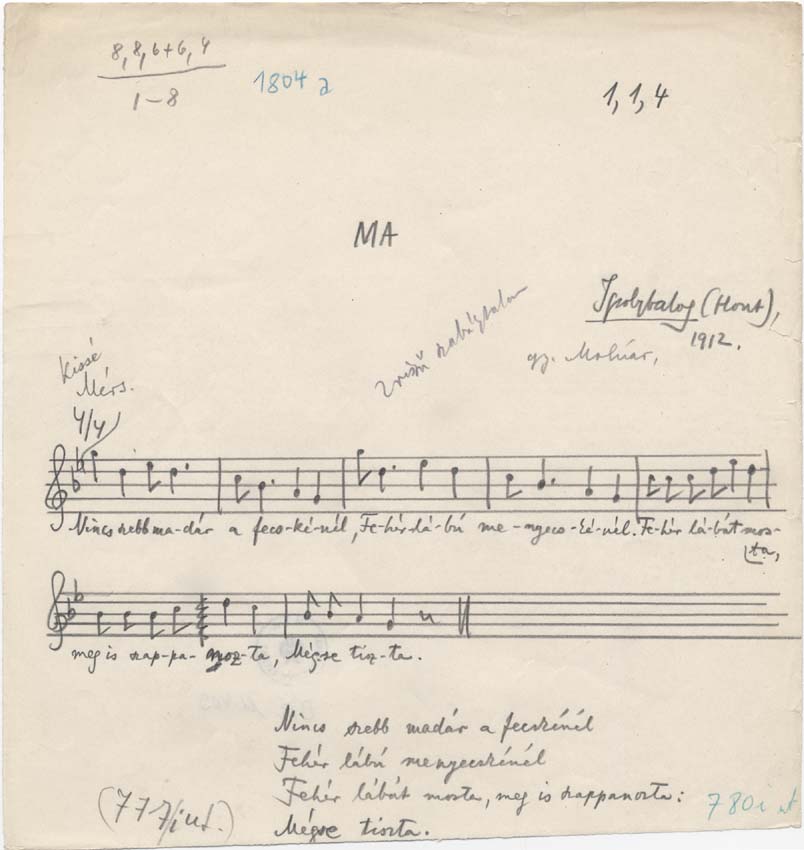 8, 8, 6+6, 4
1-8
1804 a
1, 1, 4
MA
Ipolybalog (Hont),
1912.
gy. Molnár,
Kissé
Mérs.
4/4
Nincs szebb ma-dár a fecs-ké-nél, Fe-hér lá-bú me-nyecs-ké-nél. Fe-hér lá-bát mos-
ta,
meg is szap-pa-noz-ta, Mégse tisz-ta.
Nincs szebb madár a fecskénél
Fehér lábú menyecskénél
Fehér lábát mosta, meg is szappanozta:
Mégse tiszta.